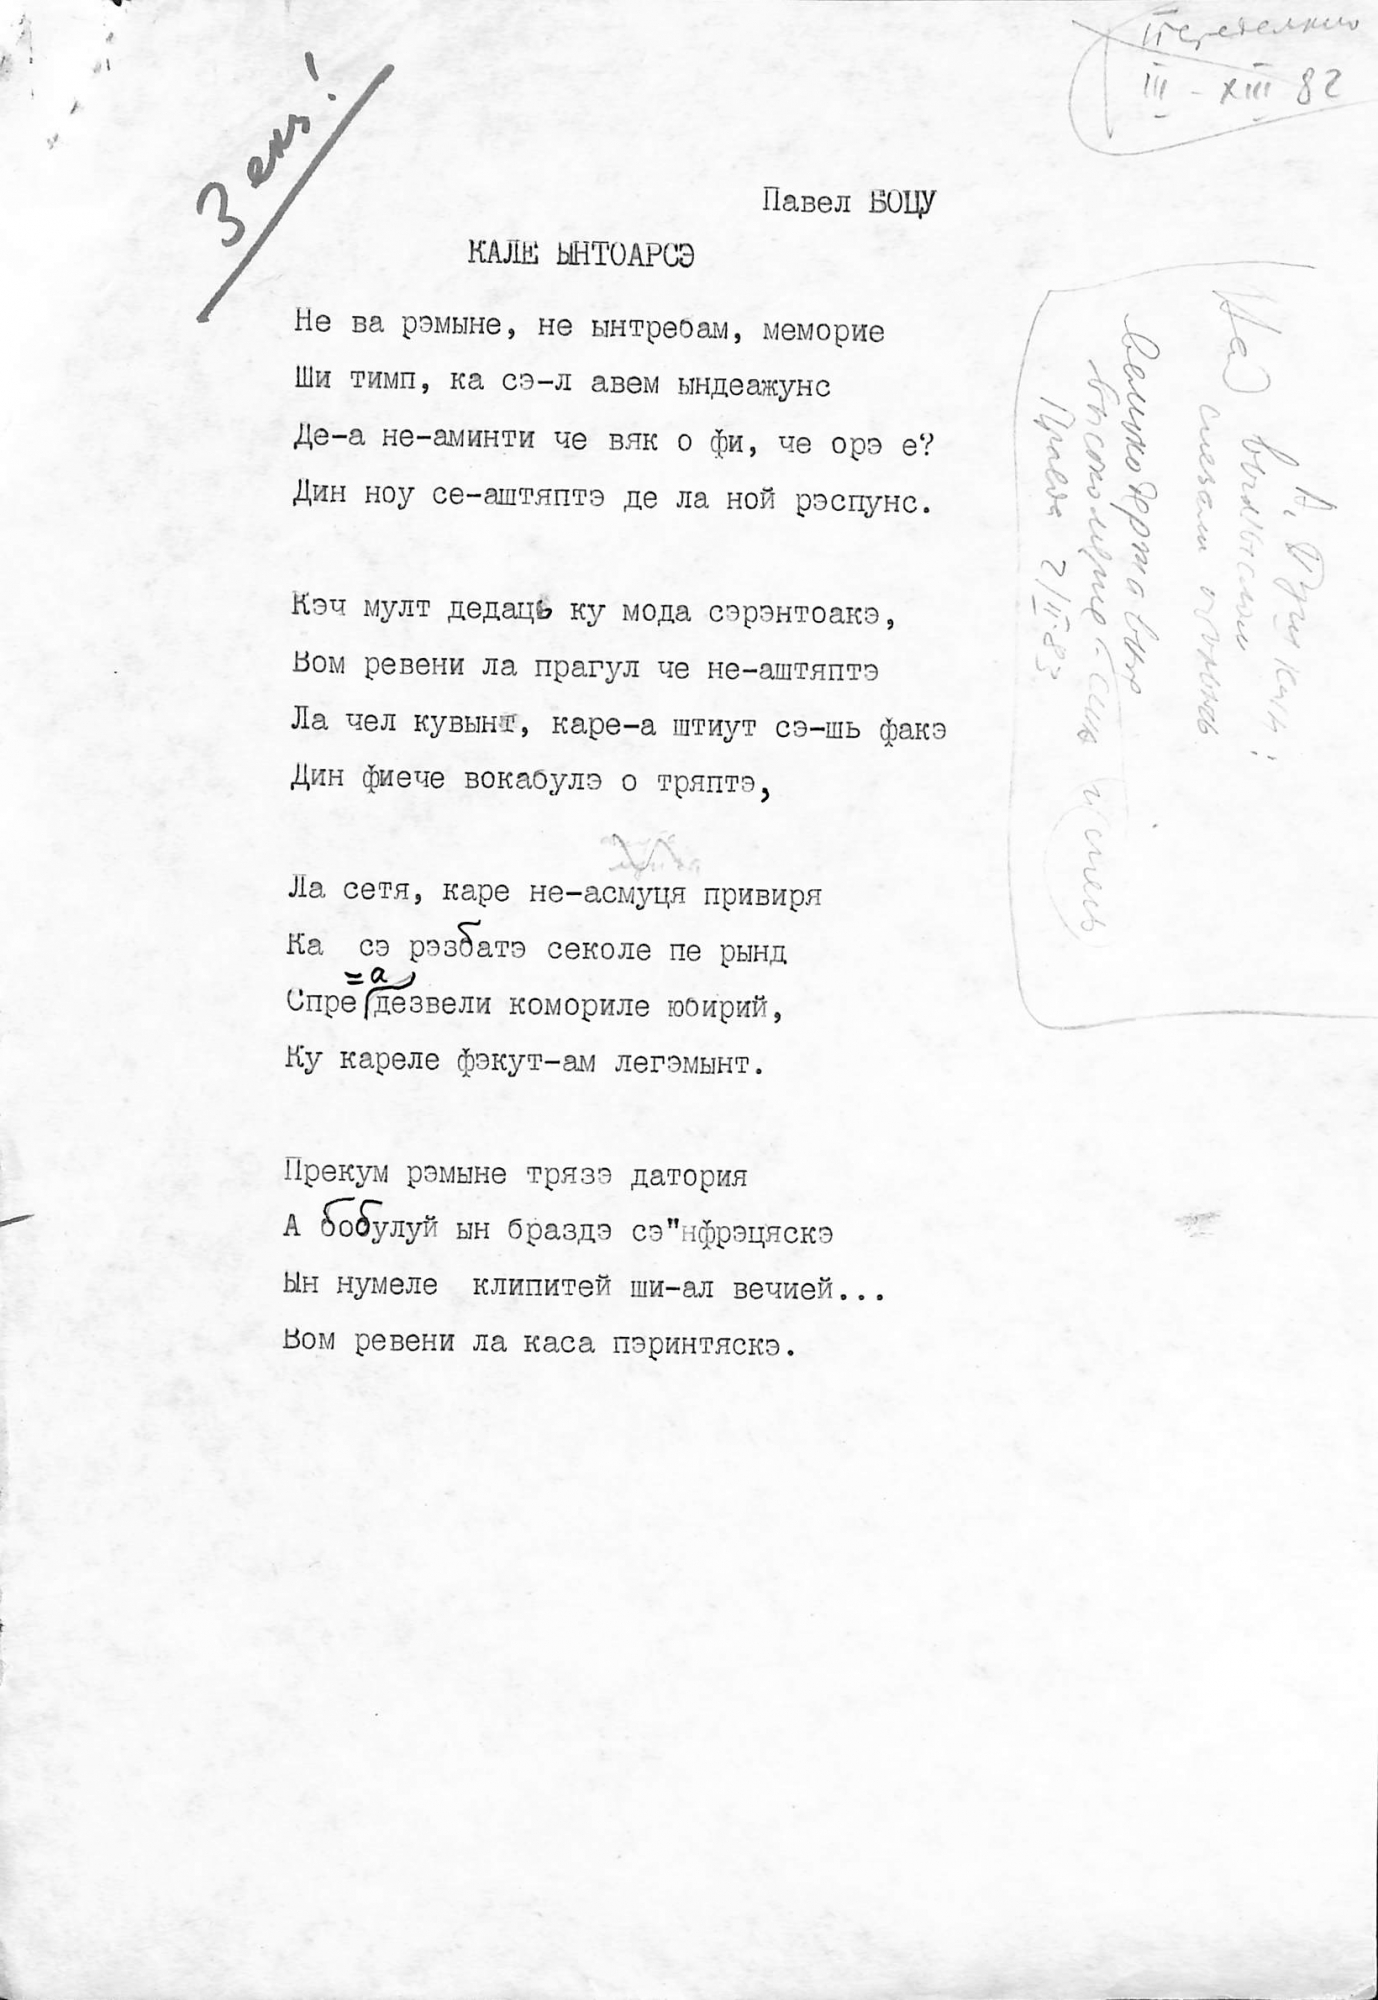 3 екз!
Переделкино
III - XIII 82
Павел БОЦУ
КАЛЕ ЫНТОАРСЭ
Не ва рэмыне, не ынтребам, мемориe
Ши тимп, ка сэ-л авем ындеажунс
Де-а не-аминти че вяк о фи, че орэ е?
Дин ноу се-аштяптэ де ла ной рэспунс.
Кэч мулт дедаць ку мода сэрэнтоакэ,
Вом ревени ла прагул че не-аштяптэ
Ла чел кувынт, каре-а штиут сэ-шь факэ
Дин фиече вокабулэ о тряптэ,
Ла сетя, каре не-асмуця привиря
Ка сэ рэзбатэ секоле пе рынд
=а
Спре дезвели комориле юбирий,
Ку кареле фэкут-ам легэмынт.
Прекум рэмыне трязэ датория
А бобулуй ын браздэ сэ"нфрэцяскэ
Ын нумеле клипитей ши-ал вечией...
Вом ревени ла каса пэринтяскэ.
А. Пушкин:
Над вымыслом
слезами обольюсь
Великодержавные
высокомерие
Правда 2/II-83